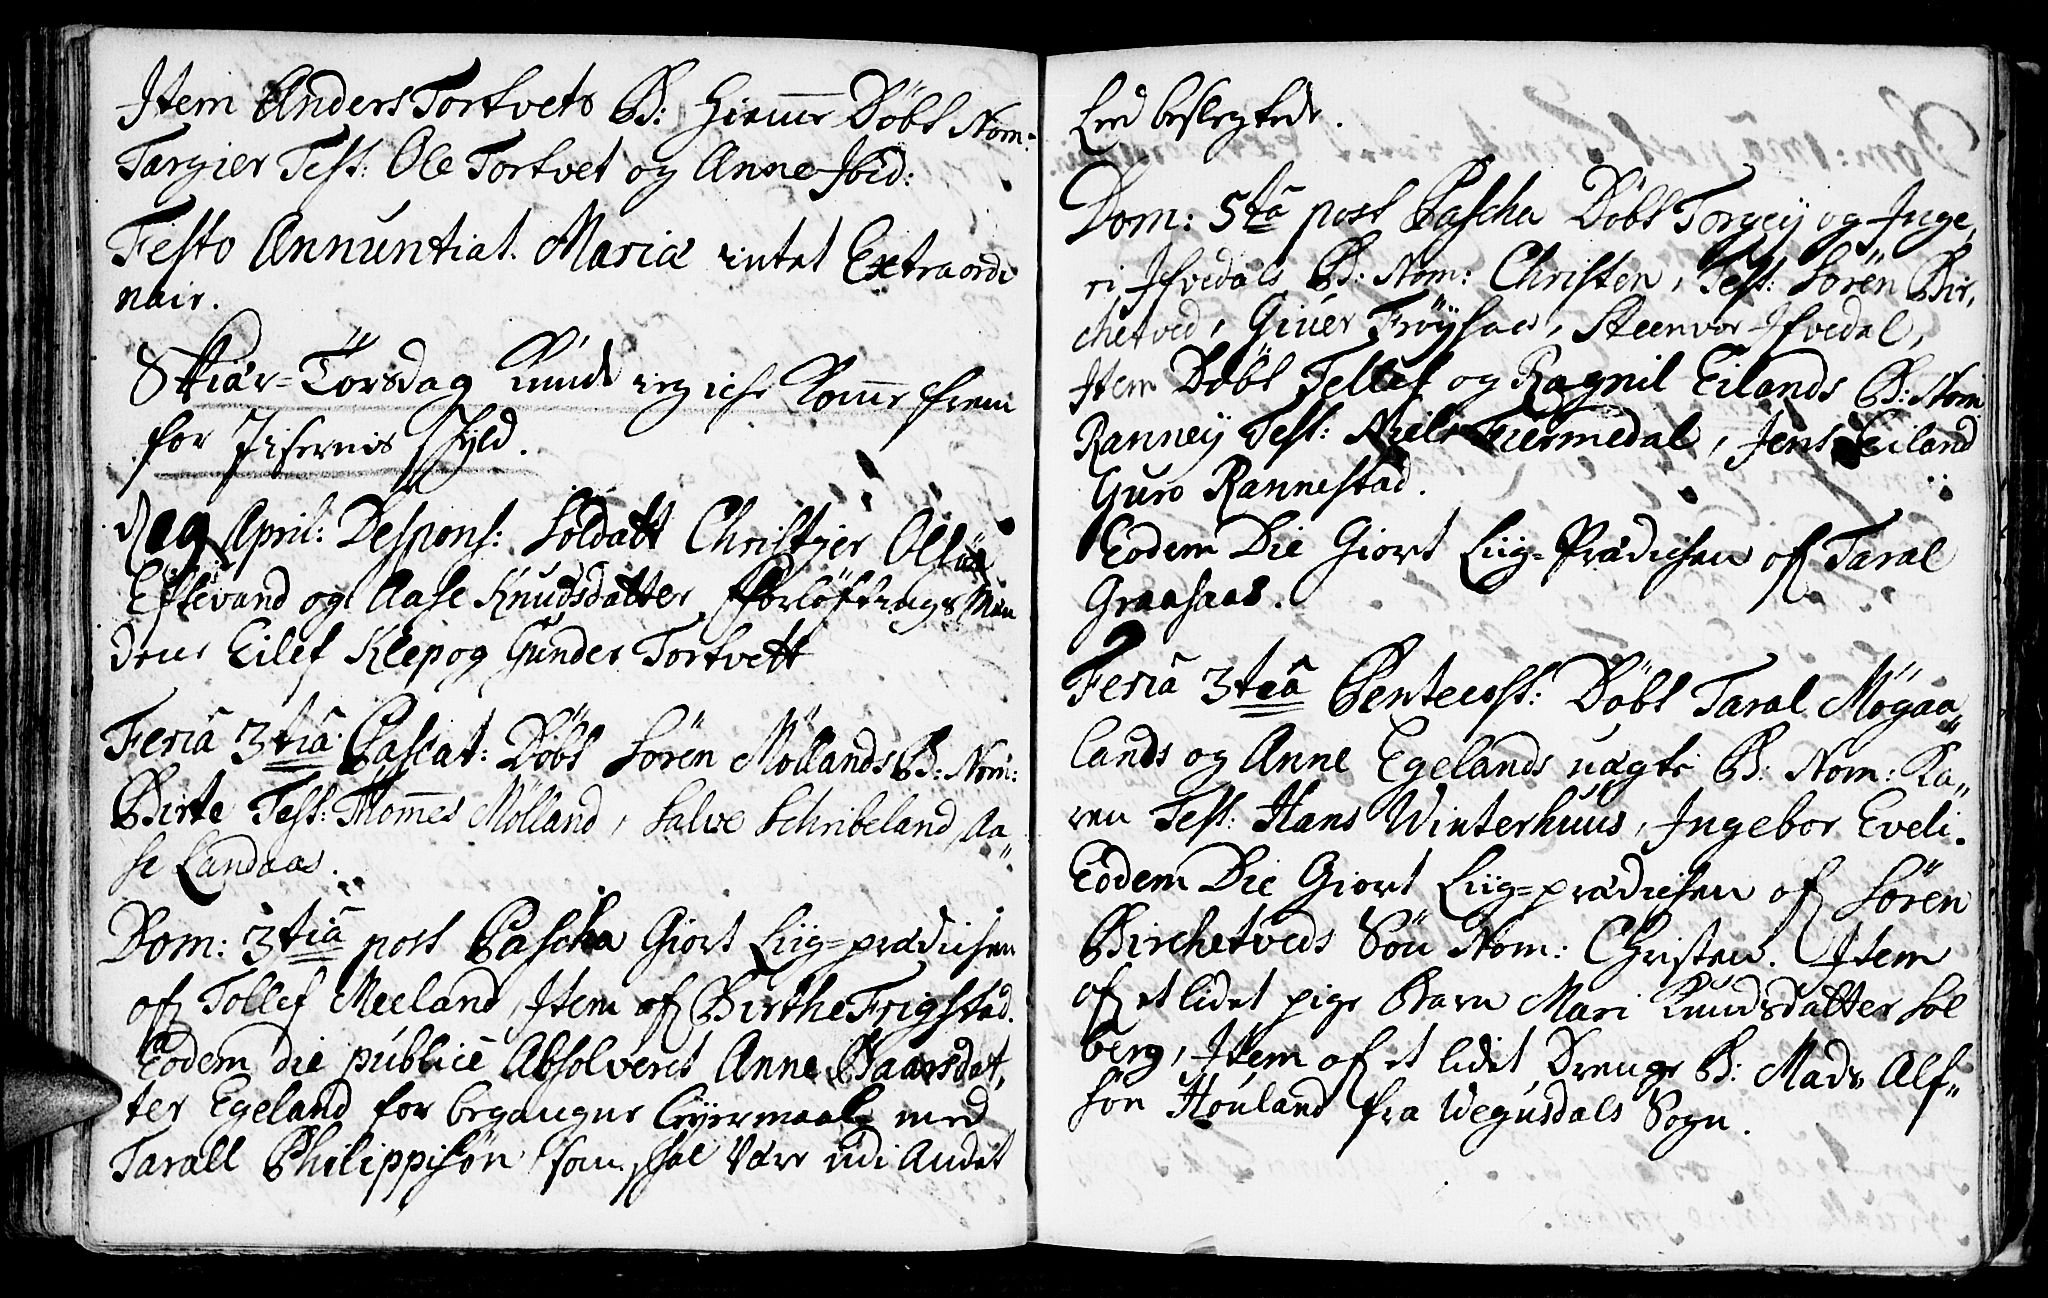 Item Anders Tortvets B: hiemme Döbt Nom:
Targier Test: Ole Tortvet og Anne Ibid:
Festo Annuntiat. Mariæ intet Extraordi
nair.
Skiær=Torsdag Kunde ieg icke Komme frem
for Jisernis skyld.
d 29 April: Despons: Soldatt Christjer
Eftevand og Aase Knudsdatter Forlöftnings Mæn
dene Eilef Klep og Gunder Tortvett
Feriâ 3tiâ Pascat: Döbt Sören Möllands B: Nom:
Birte Test: Thommes Mölland, Salve Schribeland, Aa„
se Landaas.
Dom: 3tiâ post Pascha Giort Liig=prædichen
of Tollef Meeland, Item of Birthe Frigstad.
Eodem die publicè Absolveret Anne Baarsdat„
ter Egeland for begangne Leyermaal med
Tarall Philippisön som skal Være udi Andet
Leed beslegtede.
Dom: 5tâ post Pascha Döbt Torgey og Inge„
ri Ifvedals B: Nom: Christen, Test: Sören Bir„
chetved, Giuer Fröysaas, Steenvor Ifvedal,
Item Döbt Tellef og Ragnil Eilands B: Nom
Ranney Test: Niels Fiermedal, Jens Eiland
Guro Rannestad.
Eodem Die Giort Liig=Prædichen of Taral
Graasaas.
Feriâ 3tiâ Pentecost: Döbt Taral Mögaa„
lands og Anne Egelands uægte B: Nom: Ka„
ren Test: Hans Winterhuus, Ingebor Eveli.
Eodem Die Giort Liig=prædichen of Sören
Birchetveds Sön Nom: Christen. Item
of et lidet pige Barn Mari Knudsdatter Sol
berg, Item of et lidet Drenge B: Mads Alf„
sön Houland fra Wegusdals Sogn.